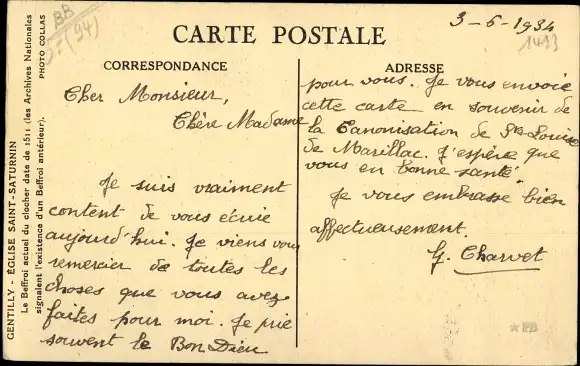 3-6-1934
1493
BB
57(94)
CARTE POSTALE
CORRESPONDANCE
ADRESSE
Cher Monsieur,
Chère Madame
Je suis vraiment
content de vous écrire
aujourd'hui. Je viens vous
remercier de toutes les
choses que vous avez
faites pour moi. Je prie
souvent le Bon Dieu
pour vous. Je vous envoie
cette carte en souvenir de
la Canonisation de Ste Louise
de Marillac. J'espère que
vous en bonne santé.
Je vous embrasse bien
affectueusement.
G. Charvet
GENTILLY - ÉGLISE SAINT-SATURNIN
Le Beffroi actuel du clocher date de 1511 (les Archives Nationales
signalent l'existence d'un Beffroi antérieur).
PHOTO COLLAS
PB